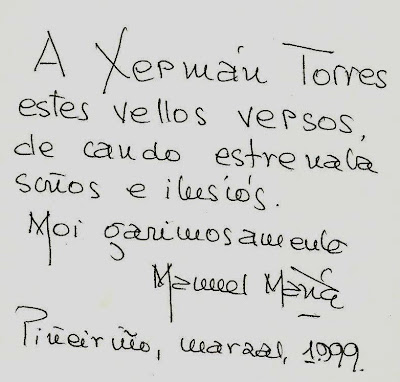 A Xermán Torres
estes vellos versos,
de cando estrenaba
soños e ilusiós.
Moi garimosamente
Manuel María
Piñeiriño, marzal, 1.999.